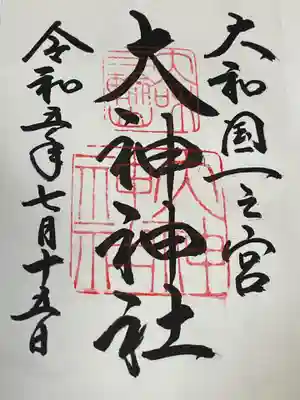 大和国一之宮
大神神社
令和五年七月十五日